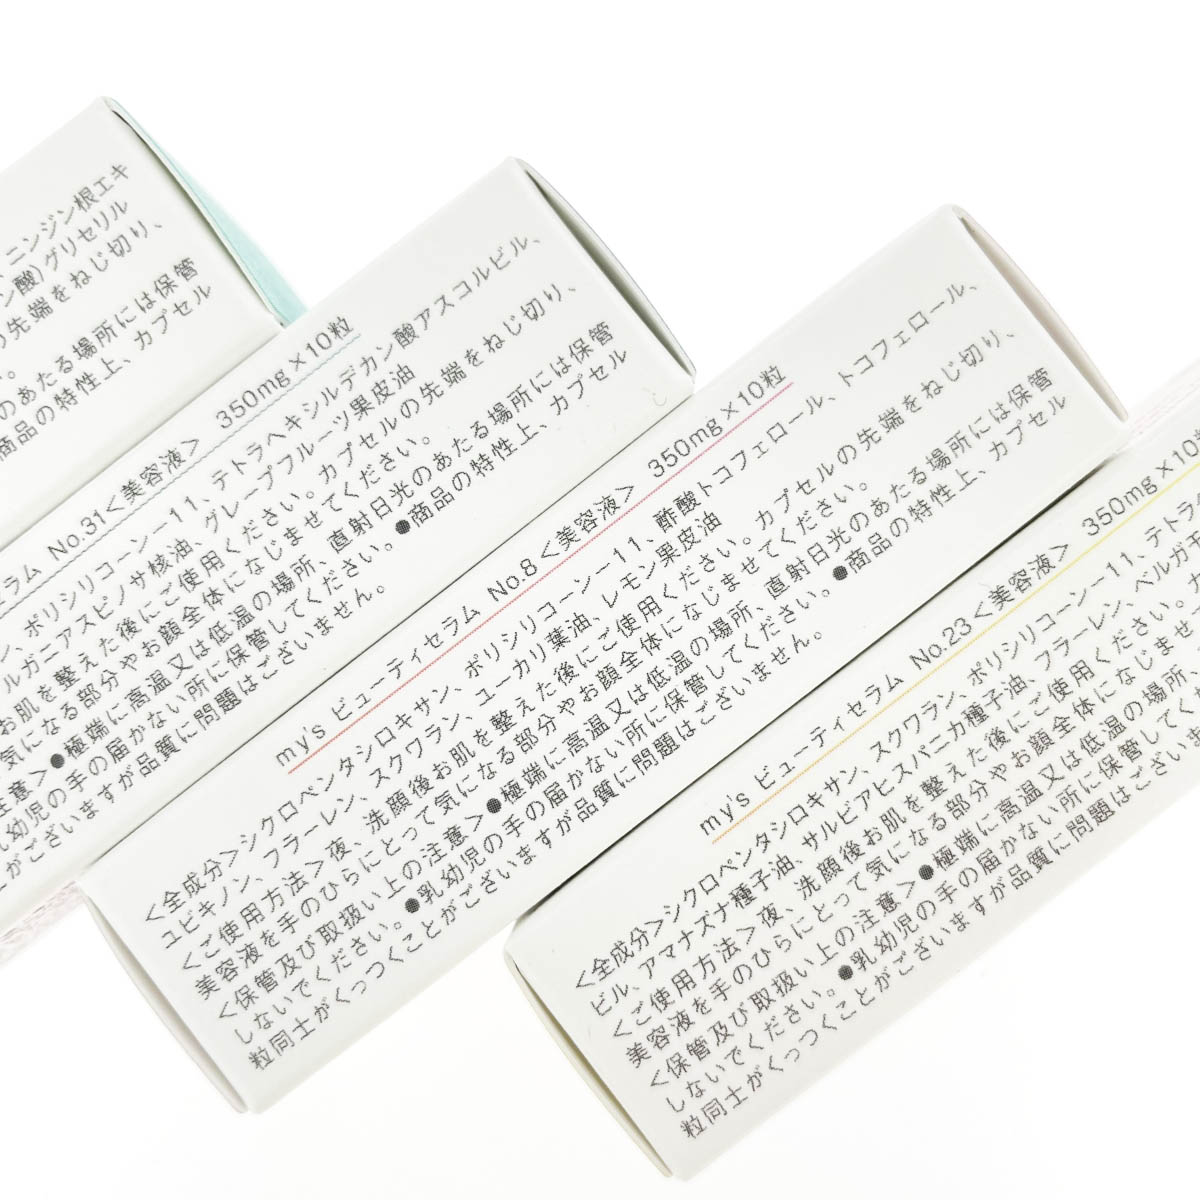 ニンジン根エキ
ン酸)グリセリル
の先端をねじ切り、
のあたる場所には保管
商品の特性上、カプセル
ラム No.31<美容液> 350mg×10粒
、ポリシリコーン−11、テトラヘキシルデカン酸アスコルビル、
ルガニアスピノサ核油、グレープフルーツ果皮油
お肌を整えた後にご使用ください。カプセルの先端をねじ切り、
気になる部分やお顔全体になじませてください。
注意>●極端に高温又は低温の場所、直射日光のあたる場所には保管
幼児の手の届かない所に保管してください。●商品の特性上、カプセル
がございますが品質に問題はございません。
my's ビューティセラム No.8 <美容液> 350mg×10粒
<全成分>シクロペンタシロキサン、ポリシリコーン−11、酢酸トコフェロール、トコフェロール、
ユビキノン、フラーレン、スクワラン、ユーカリ葉油、レモン果皮油
<ご使用方法>夜、洗顔後お肌を整えた後にご使用ください。カプセルの先端をねじ切り、
美容液を手のひらにとって気になる部分やお顔全体になじませてください。
<保管及び取扱い上の注意>●極端に高温又は低温の場所、直射日光のあたる場所には保管
しないでください。●乳幼児の手の届かない所に保管してください。●商品の特性上、カプセル
粒同士がくっつくことがございますが品質に問題はございません。
my's ビューティセラム No.23<美容液> 350mg×10
<全成分>シクロペンタシロキサン、スクワラン、ポリシリコーン−11、テトラ
ビル、アマナズナ種子油、サルビアヒスパニカ種子油、フラーレン、ベルガモ
<ご使用方法>夜、洗顔後お肌を整えた後にご使用ください。
美容液を手のひらにとって気になる部分やお顔全体になじませ
<保管及び取扱い上の注意>●極端に高温又は低温の場所、
しないでください。●乳幼児の手の届かない所に保管してく
粒同士がくっつくことがございますが品質に問題はござい